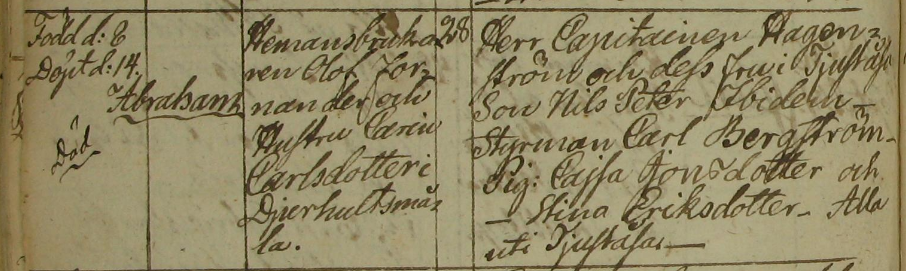 Född d: 8
Döpt d: 14.
Abraham
Död
Hemansbruka=
ren Olof For=
nander och
Hustru Carin
Carlsdotter i
Djuerhultsmå=
la.
28
Herr Capitainen Hagen=
ström och dess fru i Tjuståsa
Son Nils Peter Ibidem –
Styrman Carl Bergström –
Pig: Cajsa Jonsdotter och
– Stina Eriksdotter – Alla
uti Tjuståsa –